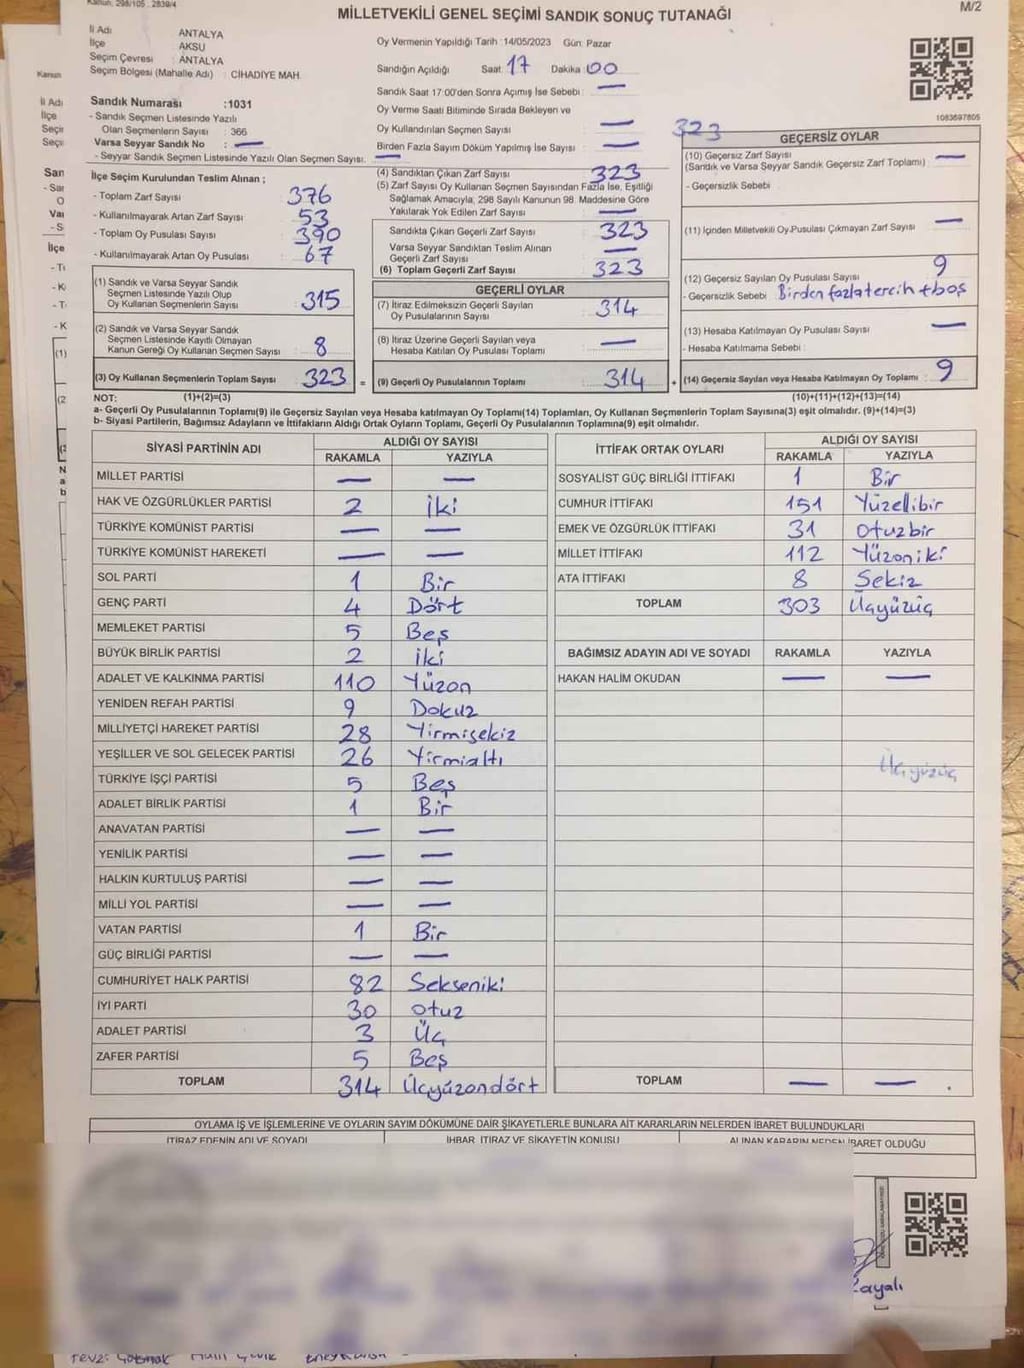 Kanun: 298/105 . 2839/4
MİLLETVEKİLİ GENEL SEÇİMİ SANDIK SONUÇ TUTANAĞI
M/2
İl Adı ANTALYA
İlçe AKSU
Seçim Çevresi : ANTALYA
Seçim Bölgesi (Mahalle Adı) : CİHADİYE MAH.
Sandık Numarası :1031
- Sandık Seçmen Listesinde Yazılı
Olan Seçmenlerin Sayısı : 366
Varsa Seyyar Sandık No : —
- Seyyar Sandık Seçmen Listesinde Yazılı Olan Seçmen Sayısı: —
Oy Vermenin Yapıldığı Tarih :14/05/2023 Gün: Pazar
Sandığın Açıldığı Saat: 17 Dakika: 00
Sandık Saat 17:00'den Sonra Açımış İse Sebebi : —
Oy Verme Saati Bitiminde Sırada Bekleyen ve
Oy Kullandırılan Seçmen Sayısı : —
Birden Fazla Sayım Döküm Yapılmış İse Sayısı : —
1083697805
İlçe Seçim Kurulundan Teslim Alınan ;
- Toplam Zarf Sayısı : 376
- Kullanılmayarak Artan Zarf Sayısı : 53
- Toplam Oy Pusulası Sayısı : 390
- Kullanılmayarak Artan Oy Pusulası : 67
(1) Sandık ve Varsa Seyyar Sandık
Seçmen Listesinde Yazılı Olup
Oy Kullanan Seçmenlerin Sayısı : 315
(2) Sandık ve Varsa Seyyar Sandık
Seçmen Listesinde Kayıtlı Olmayan
Kanun Gereği Oy Kullanan Seçmen Sayısı : 8
(3) Oy Kullanan Seçmenlerin Toplam Sayısı : 323 =
(4) Sandıktan Çıkan Zarf Sayısı : 323
(5) Zarf Sayısı Oy Kullanan Seçmen Sayısından Fazla İse, Eşitliği
Sağlamak Amacıyla, 298 Sayılı Kanunun 98. Maddesine Göre
Yakılarak Yok Edilen Zarf Sayısı : —
Sandıkta Çıkan Geçerli Zarf Sayısı : 323
Varsa Seyyar Sandıktan Teslim Alınan
Geçerli Zarf Sayısı : —
(6) Toplam Geçerli Zarf Sayısı : 323
GEÇERLİ OYLAR
(7) İtiraz Edilmeksizin Geçerli Sayılan
Oy Pusulalarının Sayısı : 314
(8) İtiraz Üzerine Geçerli Sayılan veya
Hesaba Katılan Oy Pusulası Toplamı : —
(9) Geçerli Oy Pusulalarının Toplamı : 314 +
323
GEÇERSİZ OYLAR
(10) Geçersiz Zarf Sayısı
(Sandık ve Varsa Seyyar Sandık Geçersiz Zarf Toplamı) : —
- Geçersizlik Sebebi :
(11) İçinden Milletvekili Oy Pusulası Çıkmayan Zarf Sayısı : —
(12) Geçersiz Sayılan Oy Pusulası Sayısı : 9
- Geçersizlik Sebebi : Birden fazla tercih + boş
(13) Hesaba Katılmayan Oy Pusulası Sayısı : —
- Hesaba Katılmama Sebebi :
(14) Geçersiz Sayılan veya Hesaba Katılmayan Oy Toplamı : 9
NOT: (1)+(2)=(3) (10)+(11)+(12)+(13)=(14)
a- Geçerli Oy Pusulalarının Toplamı(9) ile Geçersiz Sayılan veya Hesaba katılmayan Oy Toplamı(14) Toplamları, Oy Kullanan Seçmenlerin Toplam Sayısına(3) eşit olmalıdır. (9)+(14)=(3)
b- Siyasi Partilerin, Bağımsız Adayların ve İttifakların Aldığı Ortak Oyların Toplamı, Geçerli Oy Pusulalarının Toplamına(9) eşit olmalıdır.
SİYASİ PARTİNİN ADI ALDIĞI OY SAYISI
RAKAMLA YAZIYLA
MİLLET PARTİSİ — —
HAK VE ÖZGÜRLÜKLER PARTİSİ 2 İki
TÜRKİYE KOMÜNİST PARTİSİ — —
TÜRKİYE KOMÜNİST HAREKETİ — —
SOL PARTİ 1 Bir
GENÇ PARTİ 4 Dört
MEMLEKET PARTİSİ 5 Beş
BÜYÜK BİRLİK PARTİSİ 2 İki
ADALET VE KALKINMA PARTİSİ 110 Yüzon
YENİDEN REFAH PARTİSİ 9 Dokuz
MİLLİYETÇİ HAREKET PARTİSİ 28 Yirmisekiz
YEŞİLLER VE SOL GELECEK PARTİSİ 26 Yirmialtı
TÜRKİYE İŞÇİ PARTİSİ 5 Beş
ADALET BİRLİK PARTİSİ 1 Bir
ANAVATAN PARTİSİ — —
YENİLİK PARTİSİ — —
HALKIN KURTULUŞ PARTİSİ — —
MİLLİ YOL PARTİSİ — —
VATAN PARTİSİ 1 Bir
GÜÇ BİRLİĞİ PARTİSİ — —
CUMHURİYET HALK PARTİSİ 82 Sekseniki
İYİ PARTİ 30 otuz
ADALET PARTİSİ 3 Üç
ZAFER PARTİSİ 5 Beş
TOPLAM 314 Üçyüzondört
İTTİFAK ORTAK OYLARI ALDIĞI OY SAYISI
RAKAMLA YAZIYLA
SOSYALİST GÜÇ BİRLİĞİ İTTİFAKI 1 Bir
CUMHUR İTTİFAKI 151 Yüzellibir
EMEK VE ÖZGÜRLÜK İTTİFAKI 31 otuzbir
MİLLET İTTİFAKI 112 Yüzoniki
ATA İTTİFAKI 8 Sekiz
TOPLAM 303 Üçyüzüç
BAĞIMSIZ ADAYIN ADI VE SOYADI RAKAMLA YAZIYLA
HAKAN HALİM OKUDAN — —
Üçyüzüç
TOPLAM — —
OYLAMA İŞ VE İŞLEMLERİNE VE OYLARIN SAYIM DÖKÜMÜNE DAİR ŞİKAYETLERLE BUNLARA AİT KARARLARIN NELERDEN İBARET BULUNDUKLARI
İTİRAZ EDENİN ADI VE SOYADI İHBAR, İTİRAZ VE ŞİKAYETİN KONUSU ALINAN KARARIN NEDEN İBARET OLDUĞU